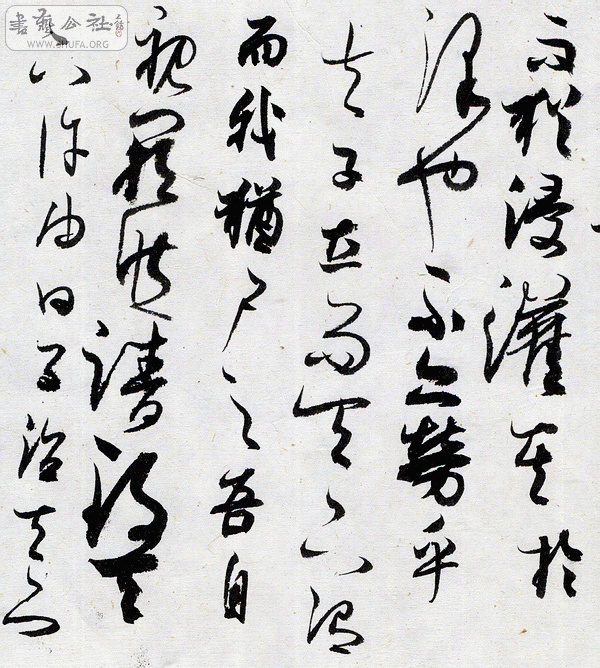 書藝公社
WWW.SHUFA.ORG
而猶浸灌其於
澤也不亦勞乎
夫子立而天下治
而我猶尸之吾自
視缺然請致天
下許由曰子治天下